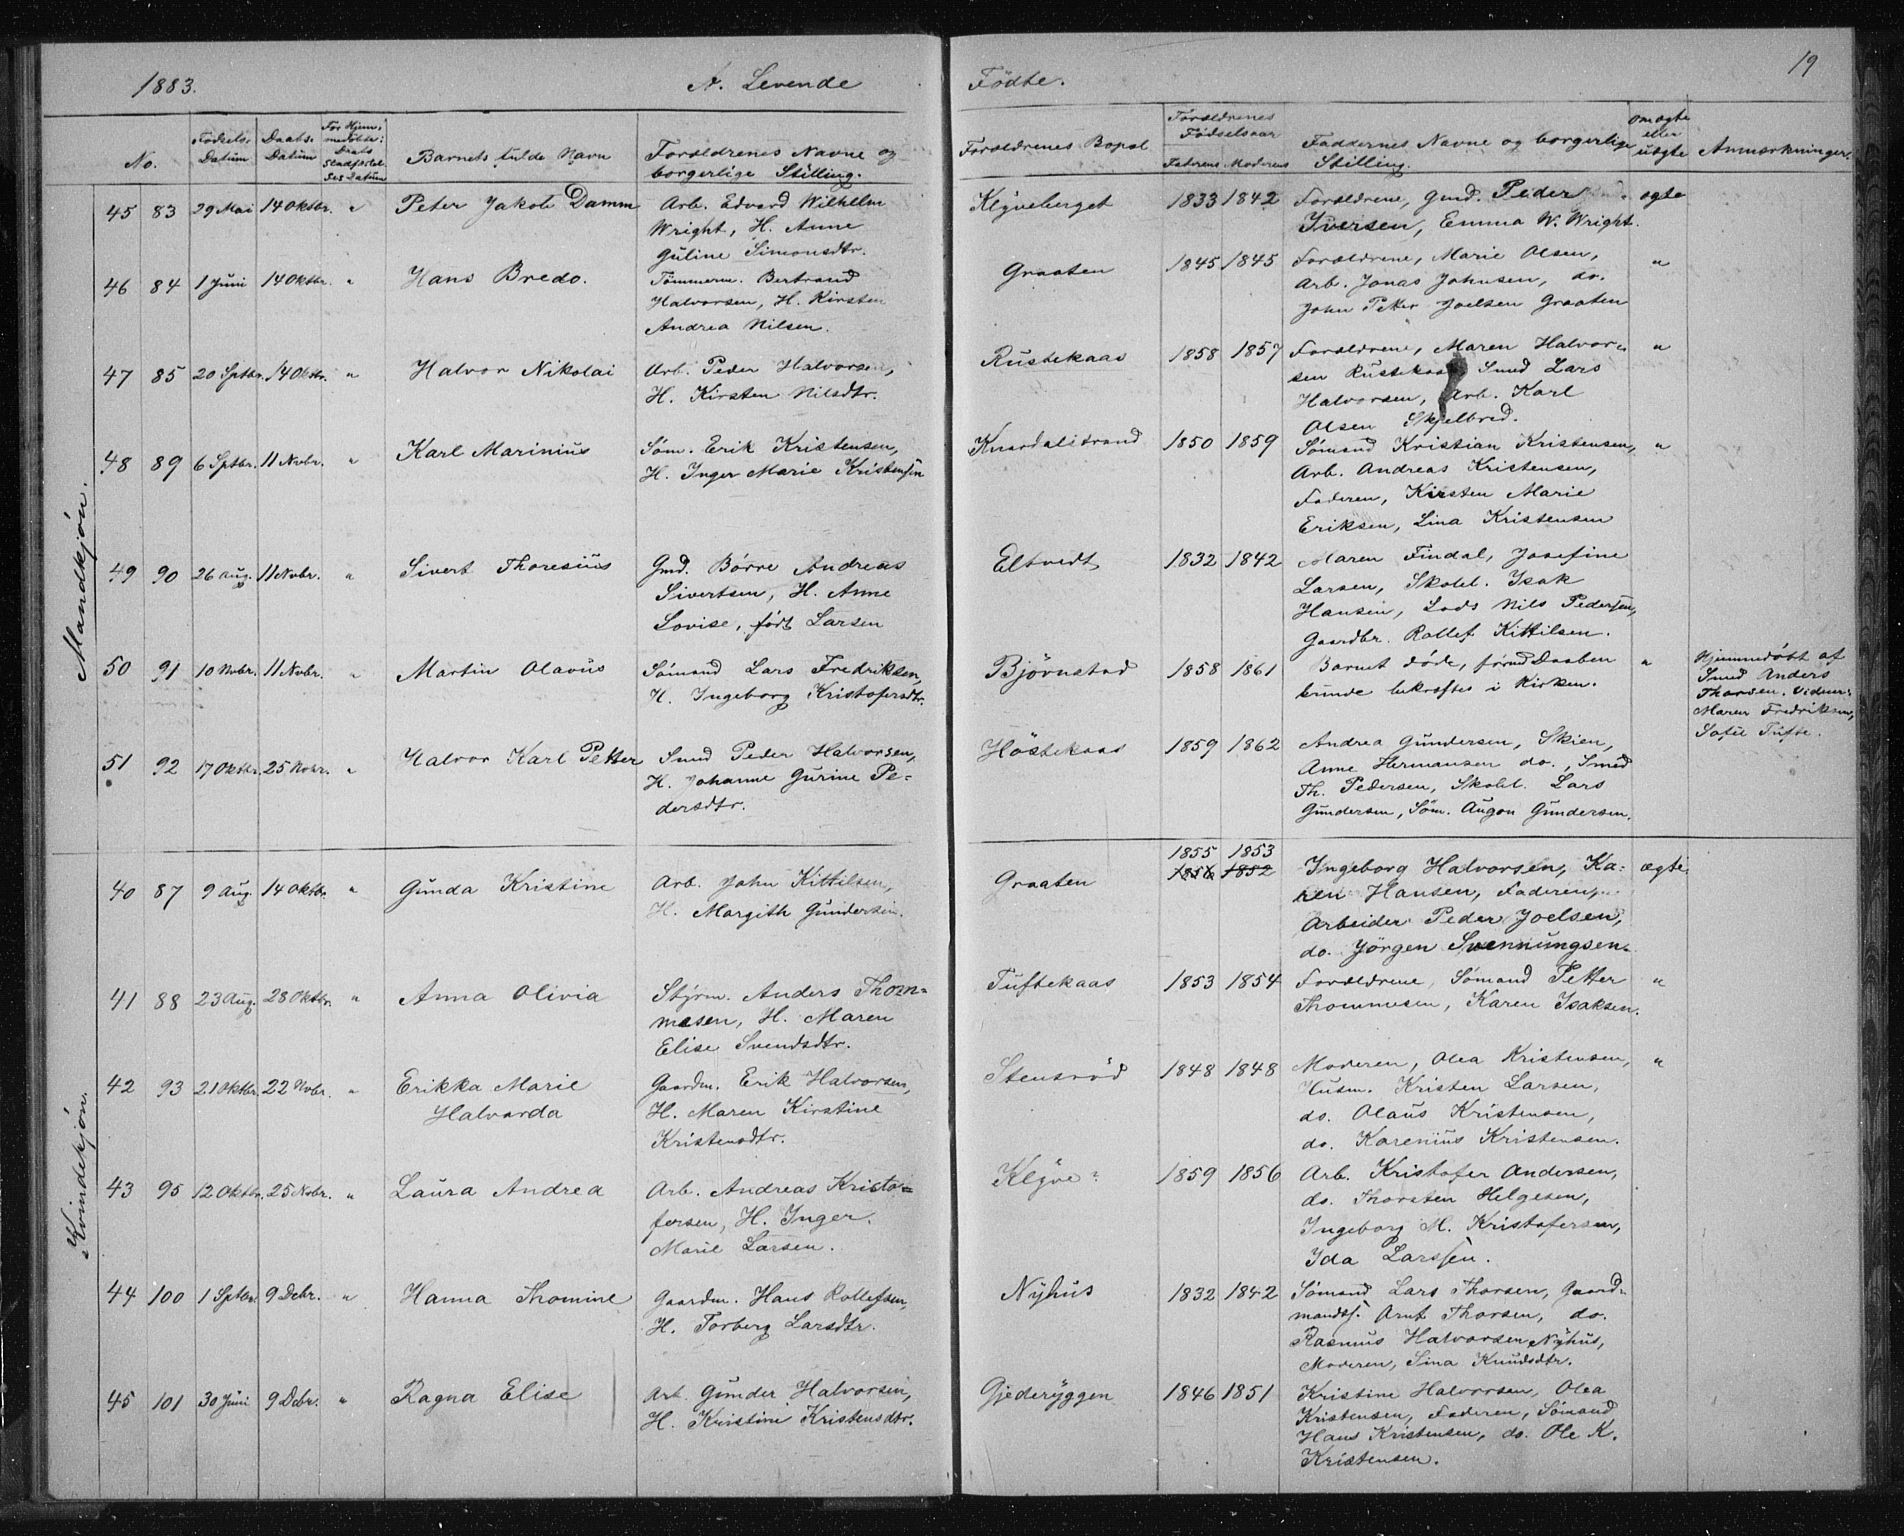 1883.
A. Levende
Fødte.
19
No.
Fødsels-Datum
Daabs-Datum
For Hjemmedøbte: Daabs Stadfæstelses Datum
Barnets fulde Navn
Forældrenes Navne og borgerlige Stilling.
Forældrenes Bopæl
Forældrenes Fødselsaar
Faderens Moderens
Faddernes Navne og borgerlige Stilling.
Om ægte eller uægte
Anmærkninger.
Mandkjøn.
45 83 29 Mai 14 Oktbr. " Peter Jakob Damm
Arb. Edvard Wilhelm
Wright, H. Anne
Guline Simonsdtr.
Klyveberget 1833 1842
Forældrene, Gmd. Peder
Iversen, Emma W. Wright.
ægte
46 84 1 Juni 14 Oktbr. " Hans Bredo.
Tømmerm. Bertrand
Halvorsen, H. Kirsten
Andrea Nilsen.
Graaten 1845 1845
Forældrene, Marie Olsen,
Arb. Jonas Johnsen, do.
John Peter Joelsen Graaten
"
47 85 20 Sptbr. 14 Oktbr. " Halvor Nikolai
Arb. Peder Halvorsen,
H. Kirsten Nilsdtr.
Rustekaas 1858 1857
Forældrene, Maren Halvor-
sen Rustekaas Smed Lars
Halvorsen, Arb. Karl
Olsen Skjelbred.
"
48 89 6 Sptbr. 11 Nvbr. " Karl Marinius
Søm. Erik Kristensen,
H. Inger Marie Kristensen
Knardalstrand 1850 1859
Sømand Kristian Kristensen,
Arb. Andreas Kristensen,
Faderen, Kirsten Marie
Eriksen, Lina Kristensen
"
49 90 26 Aug. 11 Nvbr. " Sivert Thoresius
Gmd. Børre Andreas
Sivertsen, H. Anne
Lovise, født Larsen
Eltvedt 1832 1842
Maren Findal, Josefine
Larsen, Skolel. Isak
Hansen, Lods Nils Pedersen,
Gaardbr. Rollef Kittilsen.
50 91 10 Nvbr. 11 Nvbr. " Martin Olavus
Sømand Lars Fredriksen,
H. Ingeborg Kristofersdtr.
Bjørnstad 1858 1861
Barnet døde, førend Daaben
kunde bekræftes i Kirken.
"
Hjemmedøbt af
Smed Anders
Thorsen. Vidner:
Maren Fredriksen,
Sofie Tufte.
51 92 17 Oktbr. 25 Nvbr. " Halvor Karl Petter
Smed Peder Halvorsen,
H. Johanne Gurine Pe-
dersdtr.
Høstekaas 1859 1862
Andrea Gundersen, Skien,
Anne Hermansen do., Smed
Th. Pedersen, Skolel. Lars
Gundersen, Søm. Augon Gundersen.
Kvindekjøn.
40 87 9 Aug. 14 Oktbr. " Gunda Kristine
Arb. John Kittilsen,
H. Margith Gundersen.
Graaten 1855 1853
1856 1852
Ingeborg Halvorsen, Ka-
ren Hansen, Faderen,
Arbeider Peder Joelsen,
do. Jørgen Svennungsen.
ægte.
41 88 23 Aug. 28 Oktbr. " Anna Olivia
Styrm. Anders Thom-
mesen, H. Maren
Elise Svendsdtr.
Tuftekaas 1853 1854
Forældrene, Sømand Petter
Thommesen, Karen Isaksen.
"
42 93 21 Oktbr. 22 Nvbr. " Erikka Marie
Halvarda
Gaardm. Erik Halvorsen,
H. Maren Kirstine
Kristensdtr.
Stensrød 1848 1848
Moderen, Olea Kristensen,
Husm. Kristen Larsen,
do. Olaus Kristensen,
do. Karenius Kristensen.
"
43 95 12 Oktbr. 25 Nvbr. " Laura Andrea
Arb. Andreas Kristo-
fersen, H. Inger
Marie Larsen.
Klyve 1859 1856
Arb. Kristofer Andersen,
do. Thorsten Helgesen,
Ingeborg M. Kristofersen,
Ida Larssen.
44 100 1 Sptbr. 9 Debr. " Hanna Thomine
Gaardm. Hans Rollefsen,
H. Torberg Larsdtr.
Nyhus 1832 1842
Sømand Lars Thorsen, Gaard-
mands. Arnt Thorsen, do.
Rasmus Halvorsen Nyhus,
Moderen, Sina Knudsdtr.
45 101 30 Juni 9 Debr. " Ragna Elise
Arb. Gunder Halvorsen,
H. Kristine Kristensdtr.
Gjederyggen 1846 1851
Kristine Halvorsen, Olea
Kristensen, Faderen, Sømand
Hans Kristensen, do. Ole K.
Kristensen.